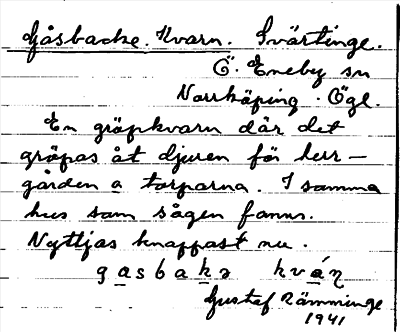 Gåsbacke. Kvarn. Svärtinge.
Ö. Eneby sn
Norrköping. Ögl.
En gröpkvarn där det
gröpas åt djuren för herr-
gården o torparna. I samma
hus som sågen fanns.
Nyttjas knappast nu.
gasbakə kván
Gustaf Rämminge
1941